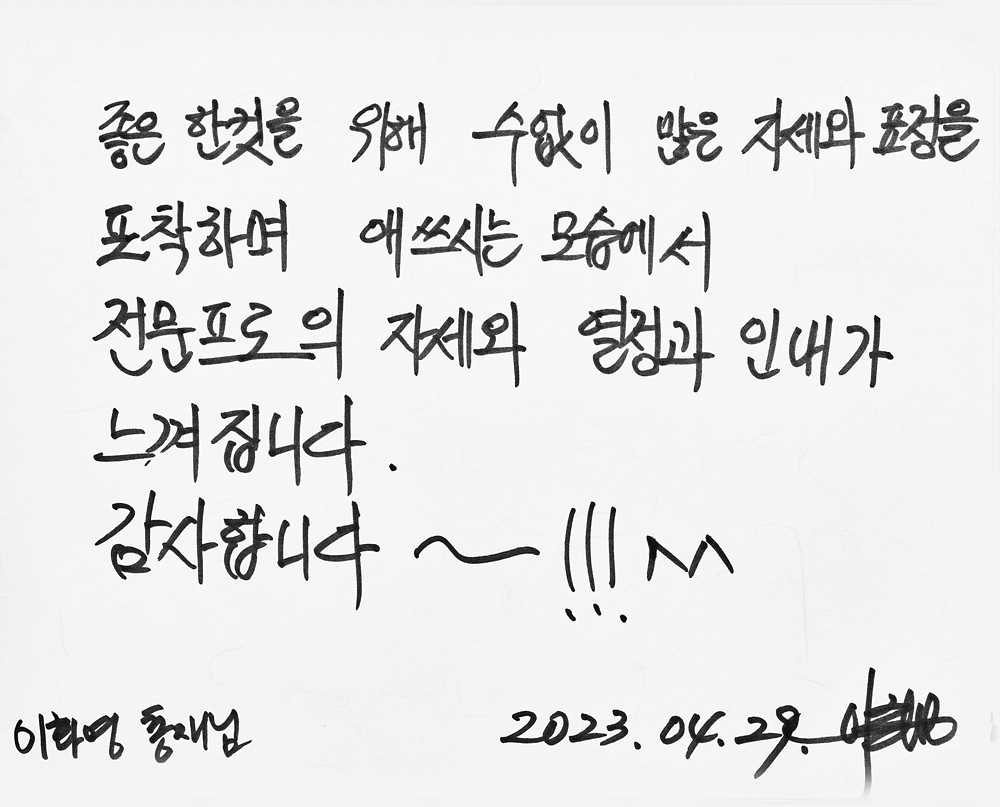 좋은 한컷을 위해 수없이 많은 자세와 표정을
포착하며 애쓰시는 모습에서
전문프로의 자세와 열정과 인내가
느껴집니다.
감사합니다~!!! ^^
이화영 총재님 2023. 04. 29.